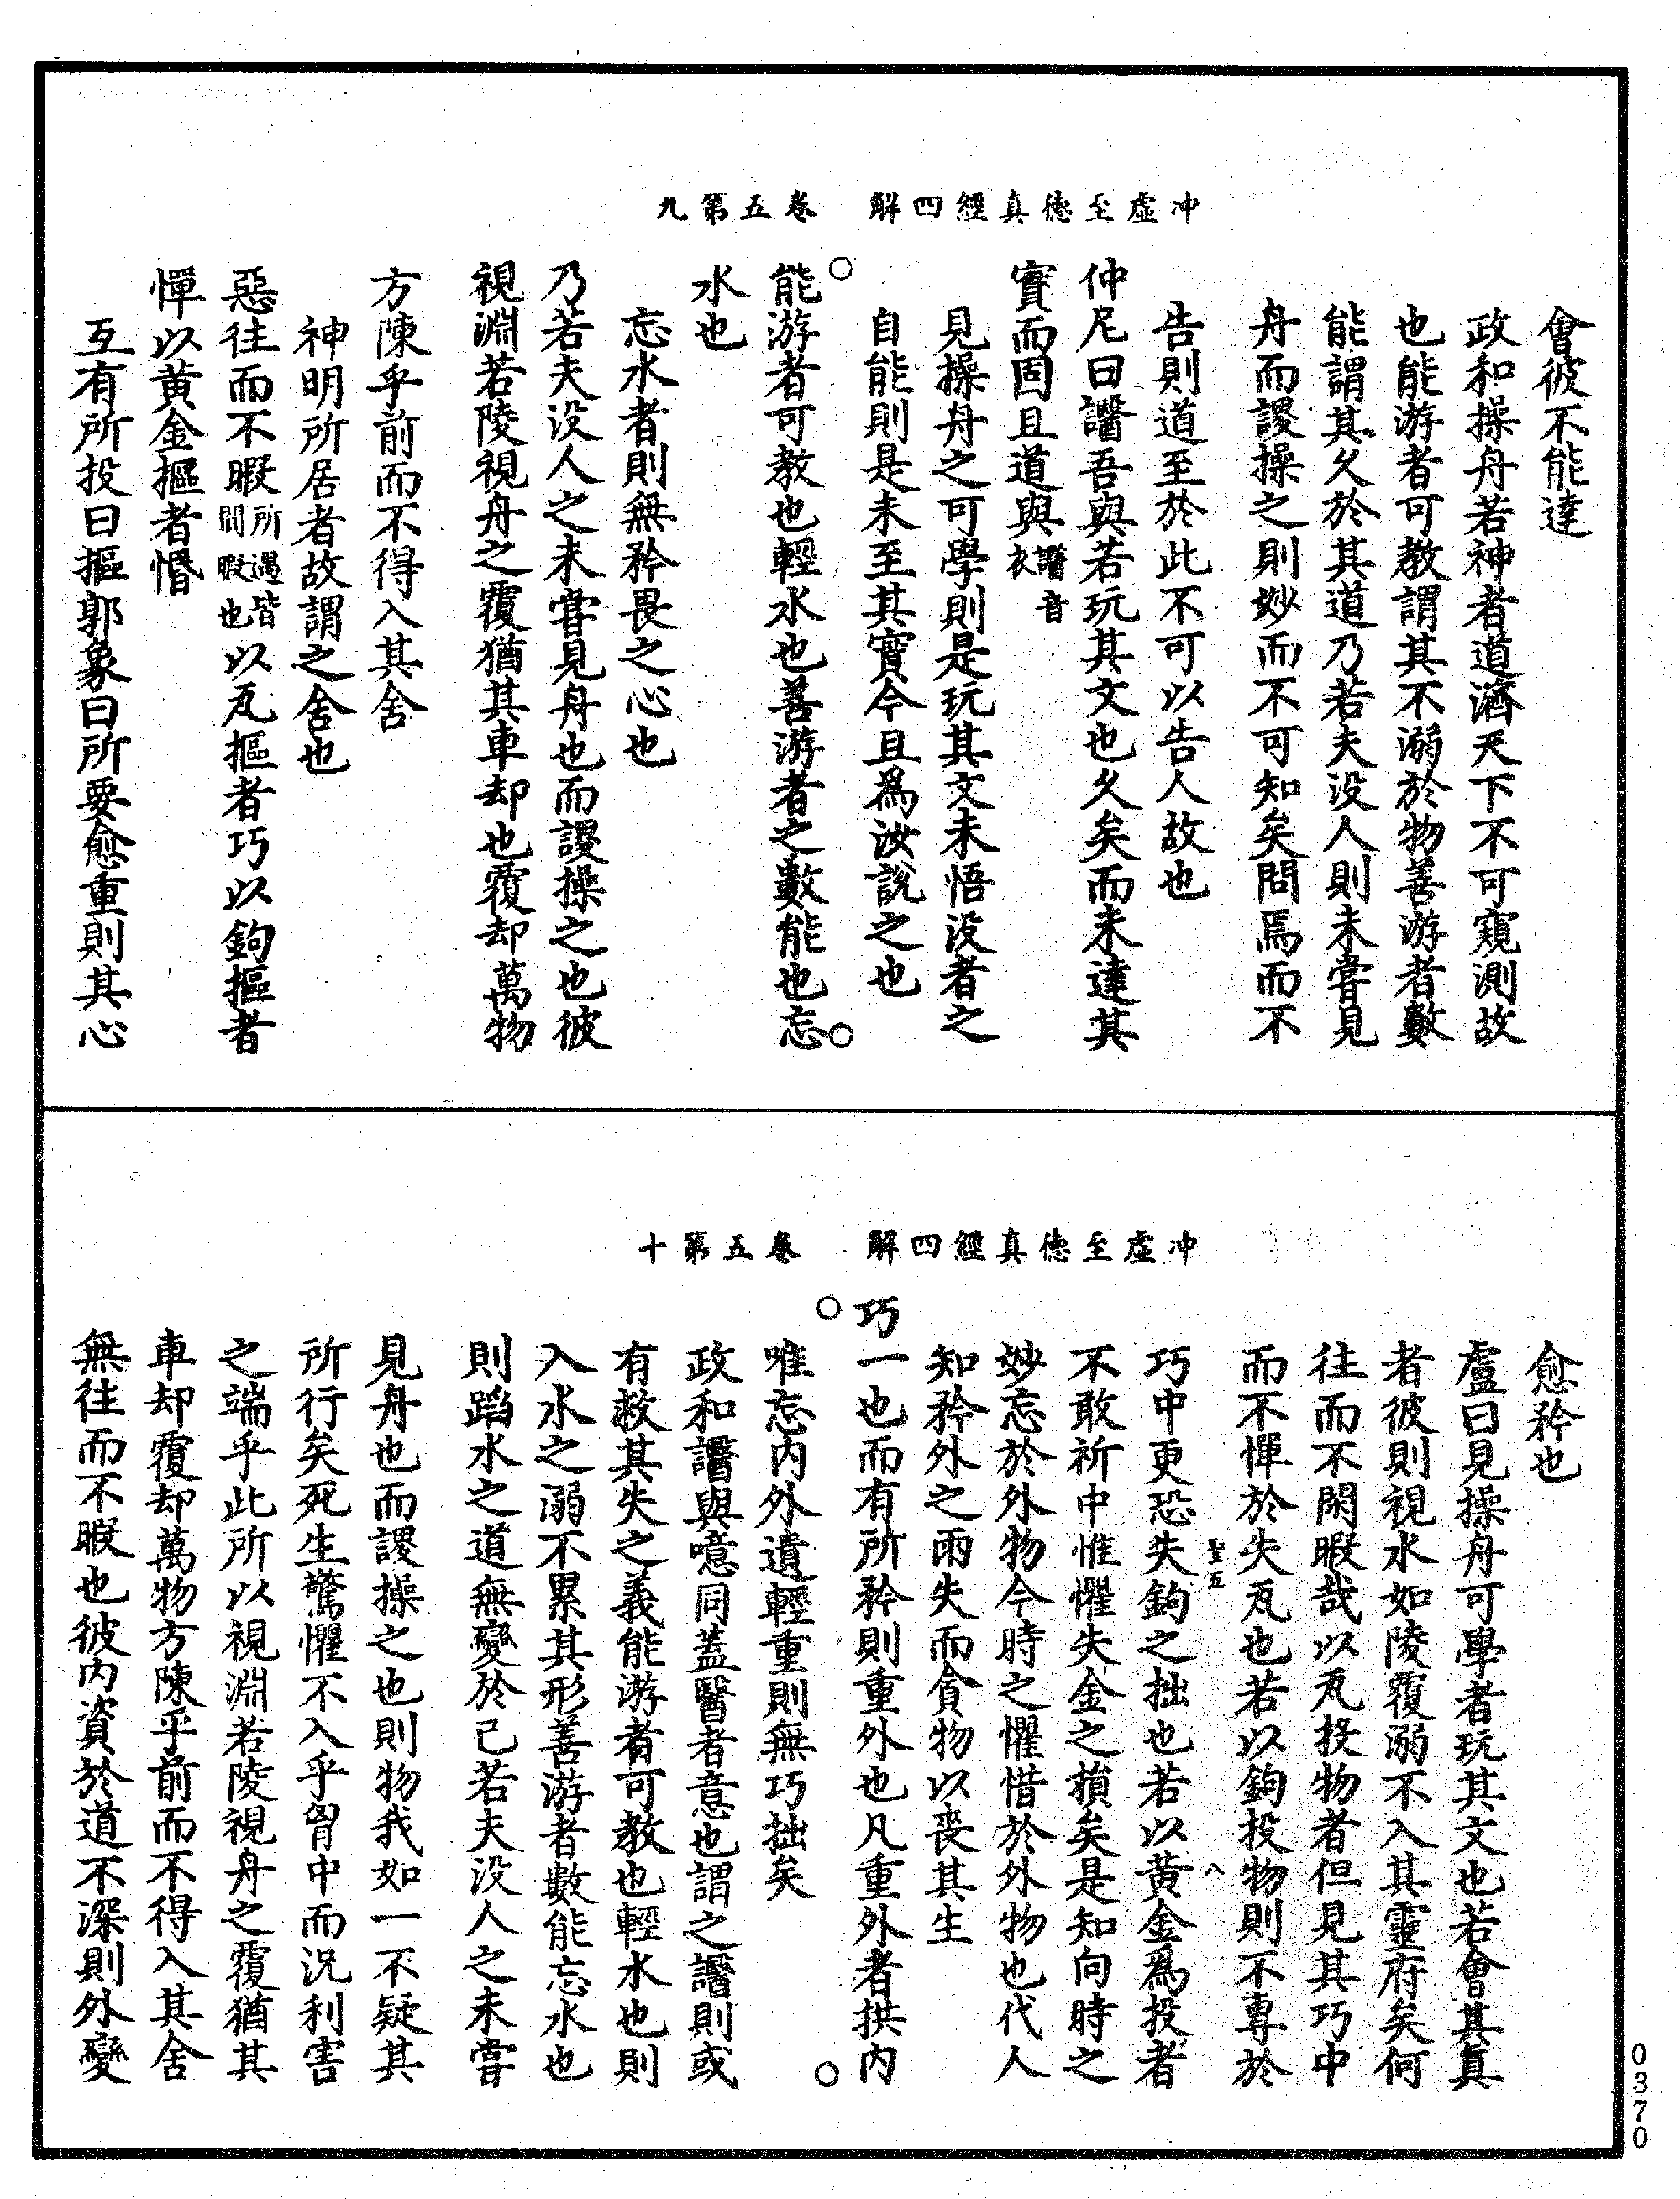 冲虛至德真經四解　卷五第九
會彼不能達
政和操舟若神者道濟天下不可窺測故
也能游者可教謂其不溺於物善游者數
能謂其久於其道乃若夫没人則未甞見
舟而謖操之則妙而不可知矣問焉而不
告則道至於此不可以告人故也
仲尼曰譩吾與若玩其文也久矣而未達其
實而固且道與譩音衣
見操舟之可學則是玩其文未悟没者之
自能則是未至其實今且爲汝說之也
能游者可教也輕水也善游者之數能也忘
水也
忘水者則無矜畏之心也
乃若夫没人之未甞見舟也而謖操之也彼
視淵若陵視舟之覆猶其車却也覆却萬物
方陳乎前而不得入其舍
神明所居者故謂之舍也
惡往而不暇所遇皆間暇也以瓦摳者巧以鉤摳者
憚以黄金摳者惛
互有所投曰摳郭象曰所要愈重則其心
冲虛至德真經四解　卷五第十
愈矜也
盧曰見操舟可學者玩其文也若會其真
者彼則視水如陵覆溺不入其靈府矣何
往而不閑暇哉以瓦投物者但見其巧中
而不憚於失瓦也若以鉤投物則不專於
聖五　八
巧中更恐失鉤之拙也若以黄金爲投者
不敢祈中惟懼失金之損矣是知向時之
妙忘於外物今時之懼惜於外物也代人
知矜外之兩失而貪物以喪其生
巧一也而有所矜則重外也凡重外者拱内
唯忘内外遺輕重則無巧拙矣
政和譩與噫同蓋醫者意也謂之譩則或
有救其失之義能游者可教也輕水也則
入水之溺不累其形善游者數能忘水也
則蹈水之道無變於己若夫没人之未甞
見舟也而謖操之也則物我如一不疑其
所行矣死生驚懼不入乎胷中而況利害
之端乎此所以視淵若陵視舟之覆猶其
車却覆却萬物方陳乎前而不得入其舍
無往而不暇也彼内資於道不深則外變
0370